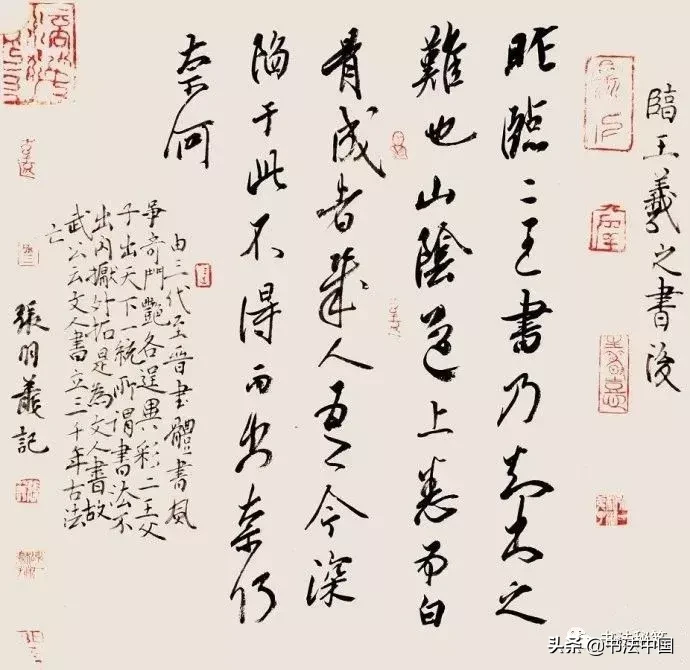 臨王羲之書後
昨臨二王書乃知書之
難也山陰道上悉為白
骨成者幾人吾今深
陷于此不得而出奈何
奈何
由三代至晉書體書風
爭奇鬥艷各逞異彩二王父
子出天下一統所謂書法不
出內擫外拓是為文人書故
武公云文人書立三千年古法
亡
張 記
头条 @书法中国